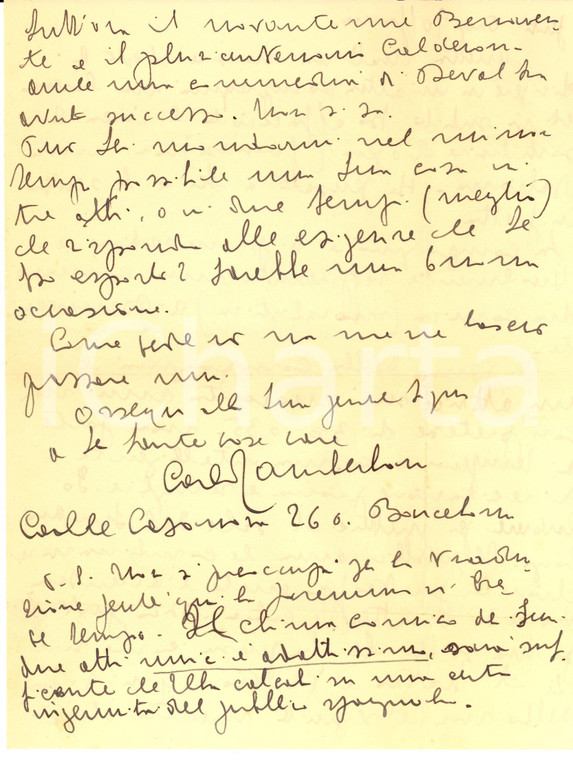 tutt'ora il novantenne Benaven-
te e il più che centenario Calderon.
anche una commedia di Deval ha
avuto successo. Non si sa.
Può Lei mandarmi nel minor
tempo possibile una Sua cosa in
tre atti, o in due tempi (meglio)
che risponda alle esigenze che Le
ho esposto? Sarebbe una buona
occasione.
Come vede io non me ne lascio
passare una.
Ossequi alla Sua gentile Signora
a Le tante cose care
Carlo Lamberton
Calle Casanova 260. Barcelona
P.S. Non si preoccupi per la traduzione
perchè qui la faremmo in bre-
ve tempo. Il clima comico de Suoi
due atti unici è adattissimo, sarà suf-
ficiente che Ella calcoli su una certa
ingenuità del pubblico spagnolo.
iCharta